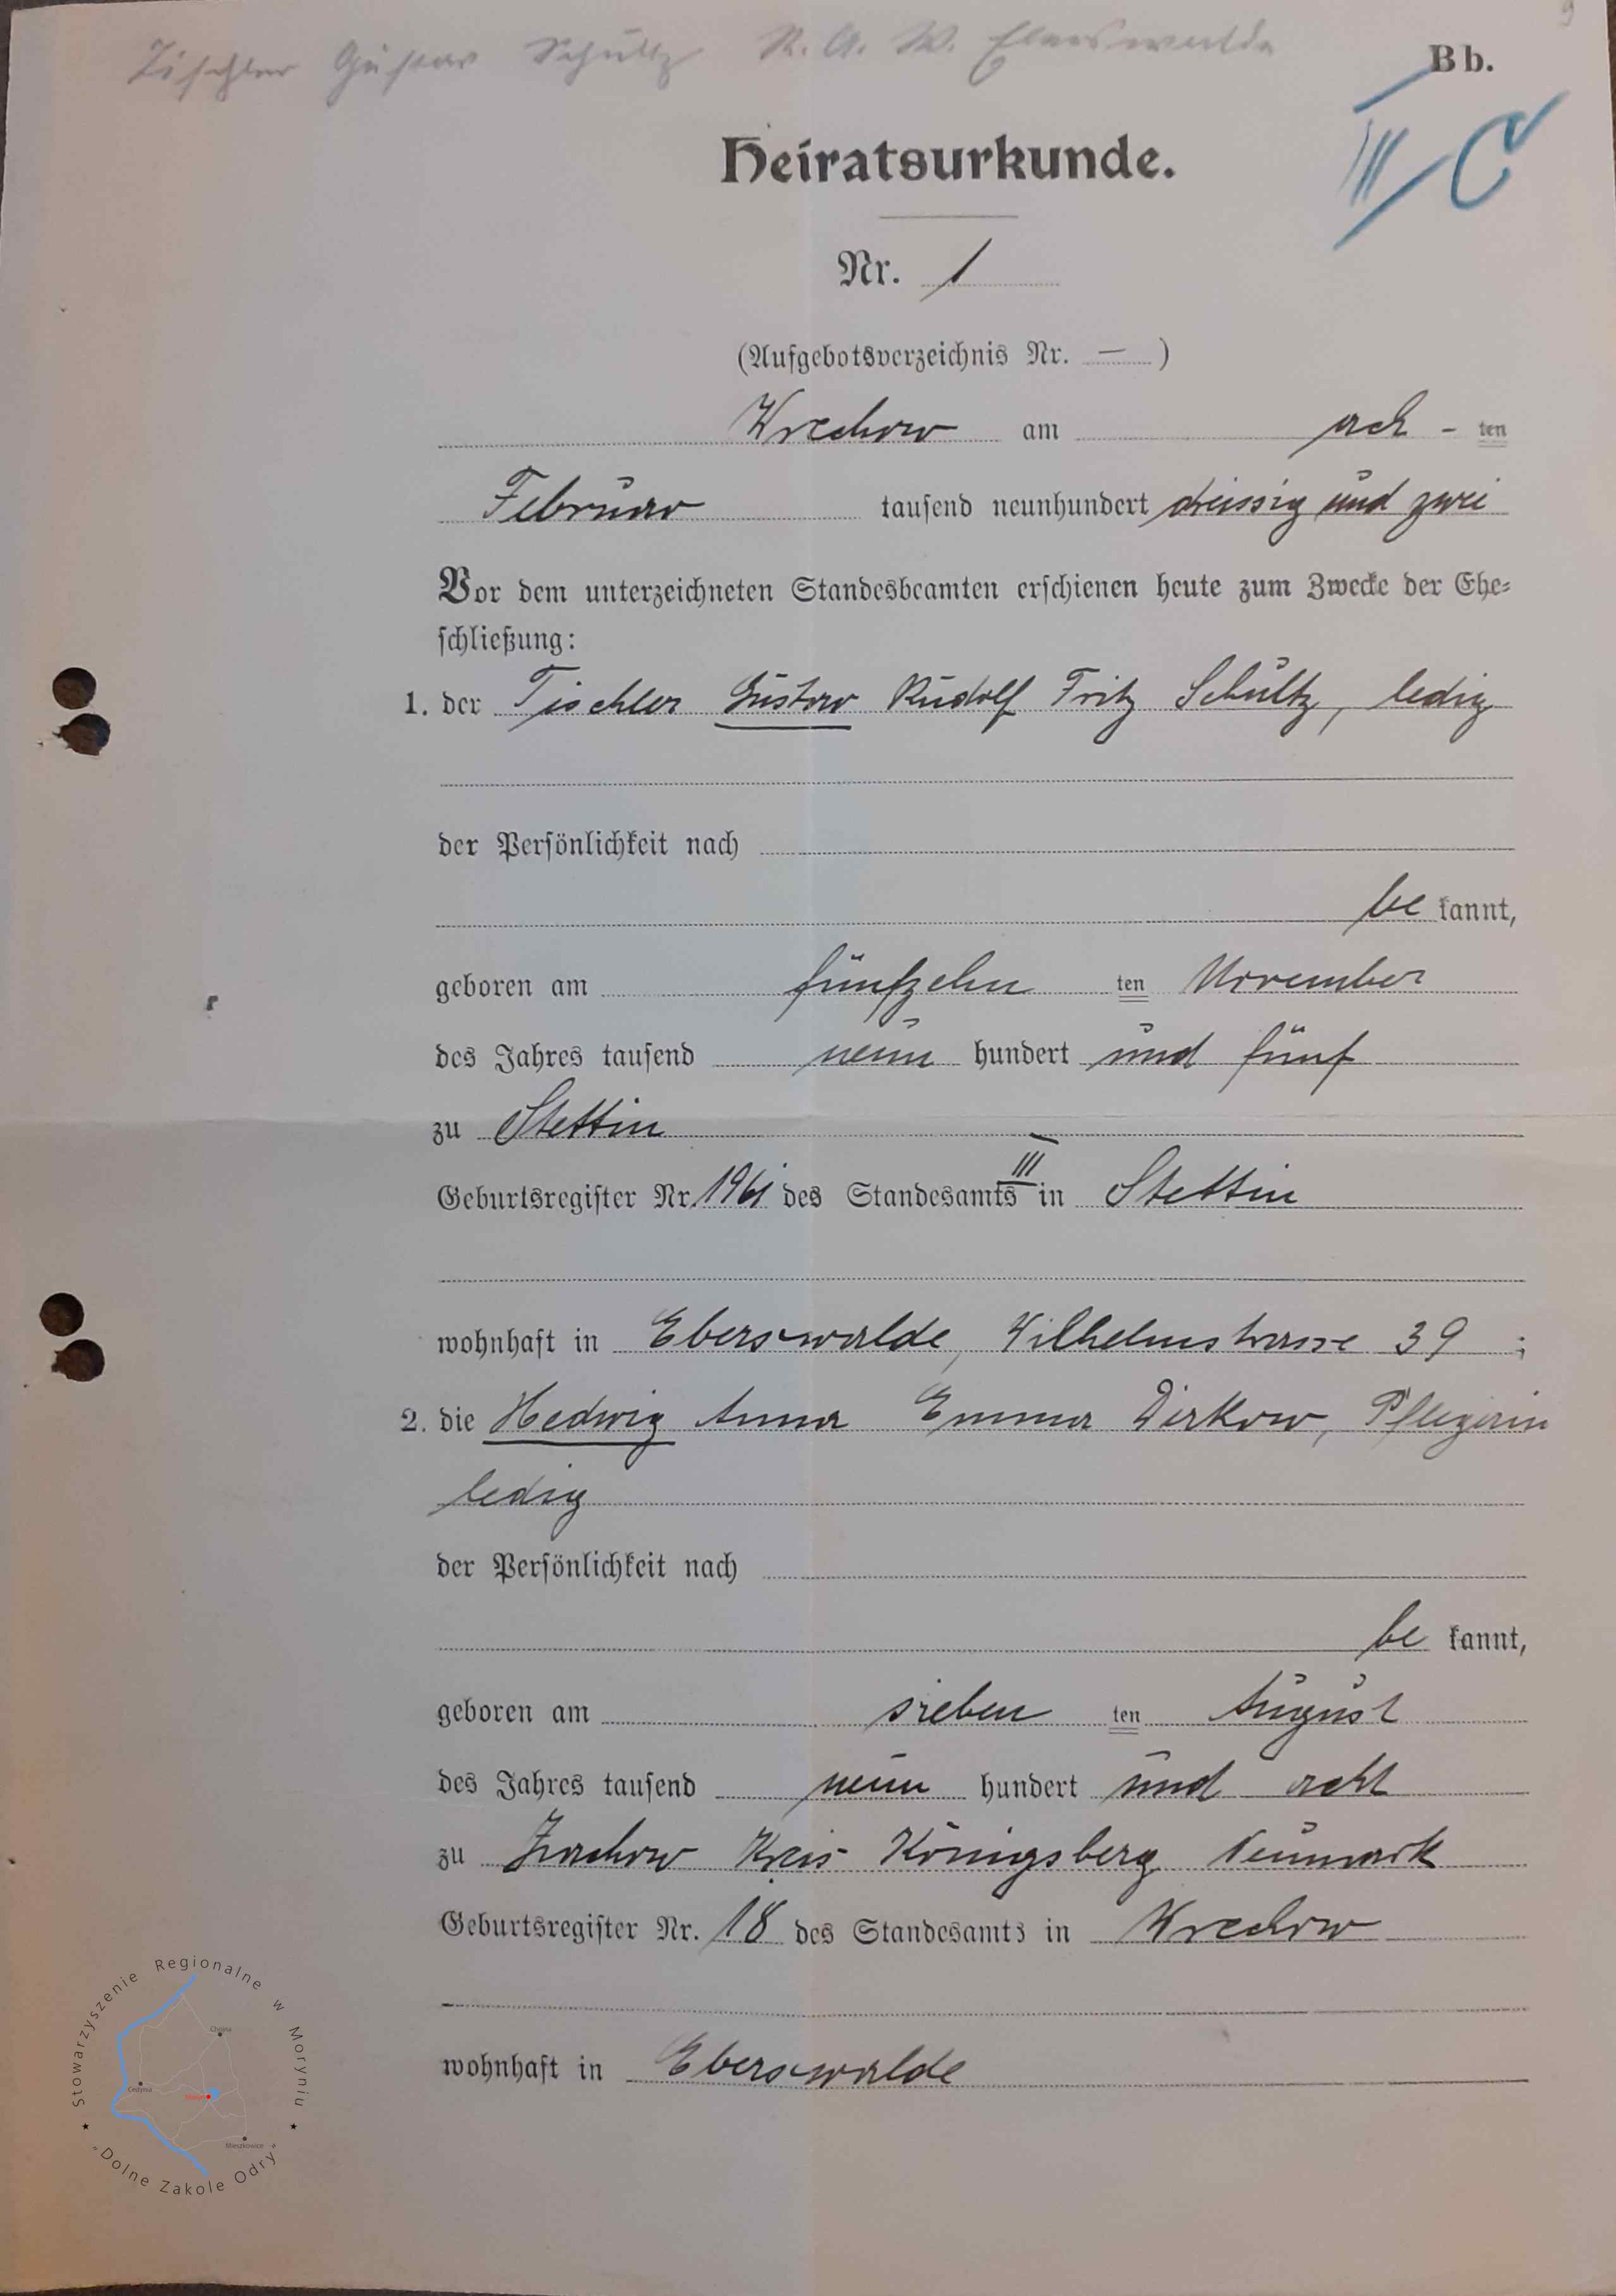 Tischler Gustav Schultz R. A. W. Eberswalde
9
Bb.
III C
Heiratsurkunde.
Nr. 1
(Aufgebotsverzeichnis Nr. — )
Wrechow am ach - ten
Februar tausend neunhundert dreissig und zwei
Vor dem unterzeichneten Standesbeamten erschienen heute zum Zwecke der Ehe-
schließung:
1. der Tischler Gustav Rudolf Fritz Schultz, ledig
der Persönlichkeit nach
be kannt,
geboren am fünfzehn ten November
des Jahres tausend neun hundert und fünf
zu Stettin
III
Geburtsregister Nr. 1961 des Standesamts in Stettin
wohnhaft in Eberswalde, Wilhelmstrasse 39 ;
2. die Hedwig Anna Emma Dirkow, Pflegerin
ledig
der Persönlichkeit nach
be kannt,
geboren am sieben ten August
des Jahres tausend neun hundert und acht
zu Zachow Kreis Königsberg Neumark
Geburtsregister Nr. 18 des Standesamts in Wrechow
wohnhaft in Eberswalde
Stowarzyszenie Regionalne w Moryniu
Chojna
Cedynia
Moryń
Mieszkowice
"Dolne Zakole Odry"